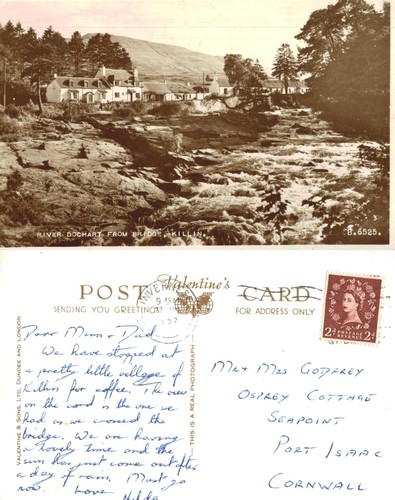 RIVER DOCHART FROM BRIDGE, KILLIN.
B.6525.
POST Valentine's CARD
SENDING YOU GREETINGS
FOR ADDRESS ONLY
VALENTINE & SONS, LTD., DUNDEE AND LONDON
THIS IS A REAL PHOTOGRAPH
POSTAGE REVENUE
2D 2D
Dear Mum & Dad
We have stopped at
a pretty little village of
Killin for coffee. The view
on the card is the one we
had as we crossed the
bridge. We are having
a lovely time and the
sun has just come out after
a day of rain. Must go
now. Love Hilda
Mr & Mrs Godfrey
Osprey Cottage
Seapoint
Port Isaac
Cornwall